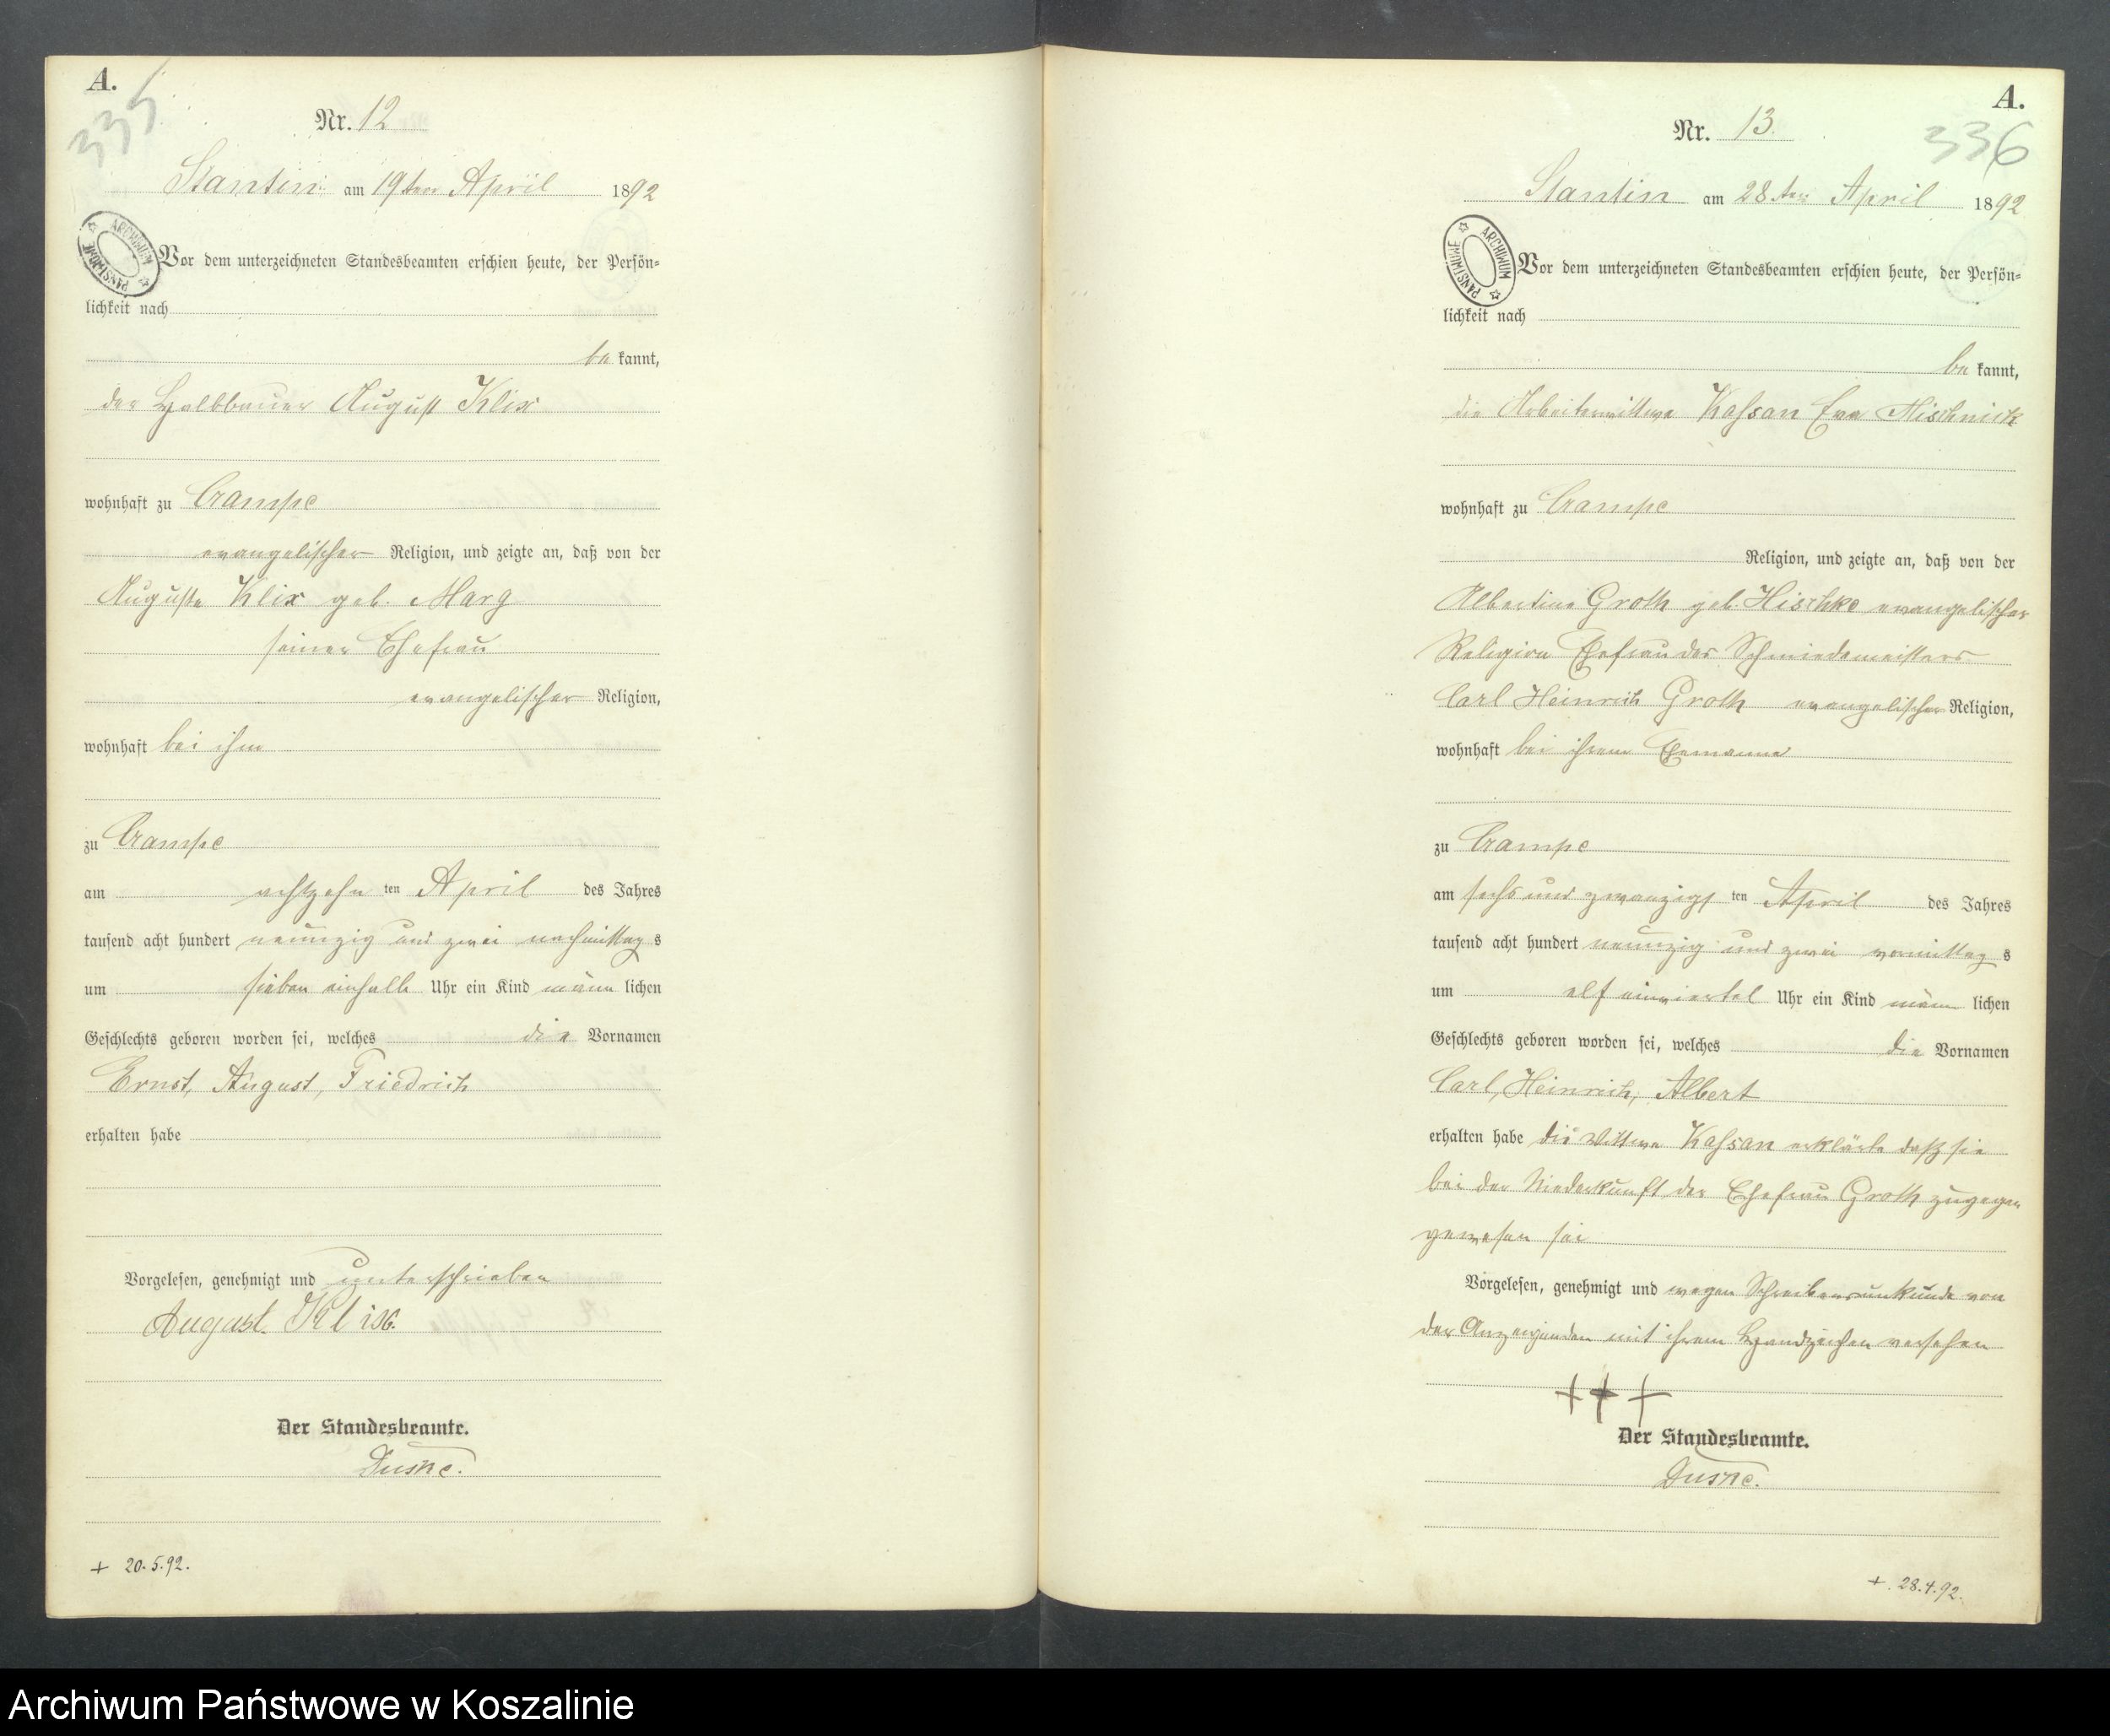 A.
335
Nr. 12
Stantin am 19ten April 1892
ARCHIWUM PAŃSTWOWE
Vor dem unterzeichneten Standesbeamten erschien heute, der Persön=
lichkeit nach
be kannt,
der Halbbauer August Klix
wohnhaft zu Crampe
evangelischer Religion, und zeigte an, daß von der
Auguste Klix geb. Marg
seiner Ehefrau
evangelischer Religion,
wohnhaft bei ihm
zu Crampe
am achtzehn ten April des Jahres
tausend acht hundert neunzig und zwei nachmittag s
um sieben einhalb Uhr ein Kind männ lichen
Geschlechts geboren worden sei, welches die Vornamen
Ernst, August, Friedrich
erhalten habe
Vorgelesen, genehmigt und unterschrieben
August Klix.
Der Standesbeamte.
+ 20.5.92.
A.
336
Nr. 13
Stantin am 28ten April 1892
ARCHIWUM PAŃSTWOWE
Vor dem unterzeichneten Standesbeamten erschien heute, der Persön=
lichkeit nach
be kannt,
die Arbeiterwittwe Kassan Eva
wohnhaft zu Crampe
Religion, und zeigte an, daß von der
Albertine Groth geb. Hischke evangelischer
Religion Ehefrau des Schmiedemeisters
Carl Heinrich Groth evangelischer Religion,
wohnhaft bei ihrem Ehemanne
zu Crampe
am sechs und zwanzigs ten April des Jahres
tausend acht hundert neunzig und zwei vormittag s
um elf einviertel Uhr ein Kind männ lichen
Geschlechts geboren worden sei, welches die Vornamen
Carl, Heinrich, Albert
erhalten habe die Wittwe Kassan erklärte daß sie
bei der Niederkunft der Ehefrau Groth zugegen
gewesen sei
Vorgelesen, genehmigt und wegen Schreibensunkunde von
der Anzeigenden mit ihrem Handzeichen versehen
+++
Der Standesbeamte.
+. 28.4.92.
Archiwum Państwowe w Koszalinie